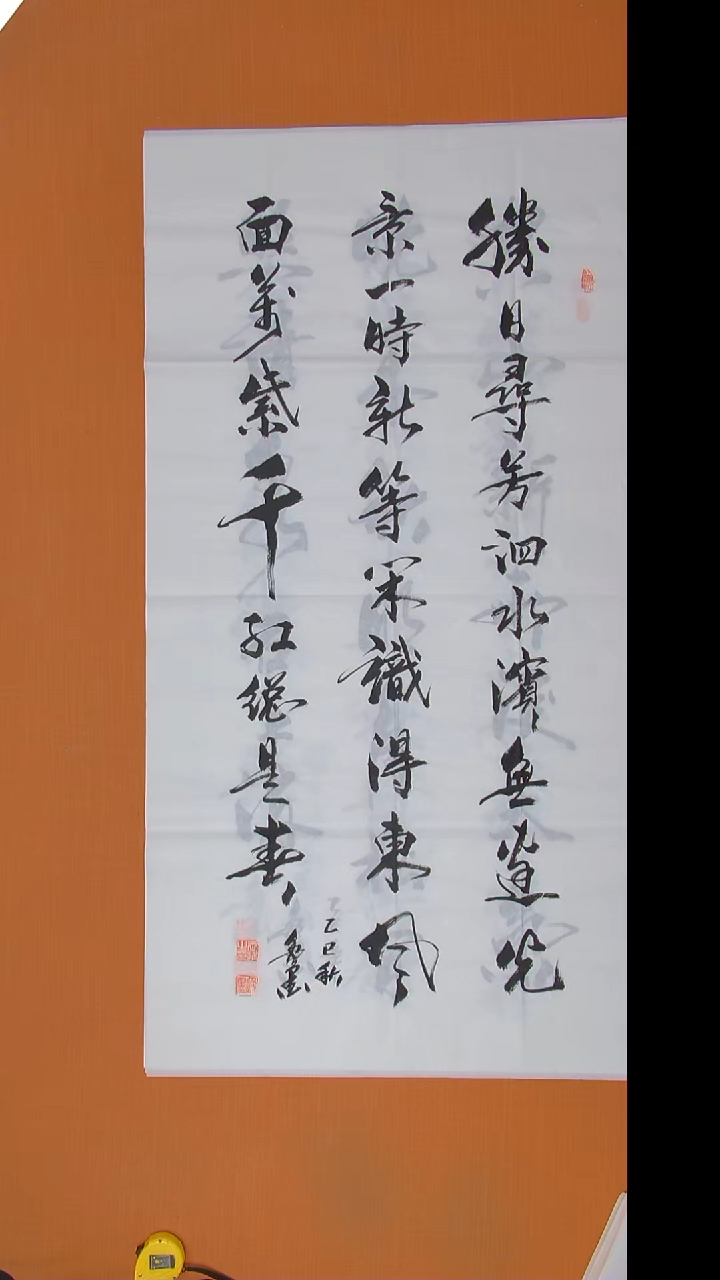 勝日尋芳泗水濱無邊光
景一時新等閑識得東風
面萬紫千紅總是春
乙巳秋